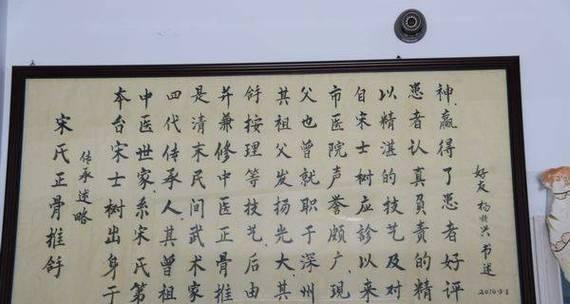 宋氏正骨推舒
传承述略
本台宋士树出身于
中医世家,系宋氏第
四代传承人其曾祖
是清末民间武术家
并兼修中医正骨推
舒按理等技艺,后由
其祖父发扬光大其
父也曾就职于深州
市医院声誉颇广,现
自宋士树应诊以来
以精湛的技艺及对
患者认真负责的精
神,赢得了患者好评
好友 杨 兴 书述
2016·3·1